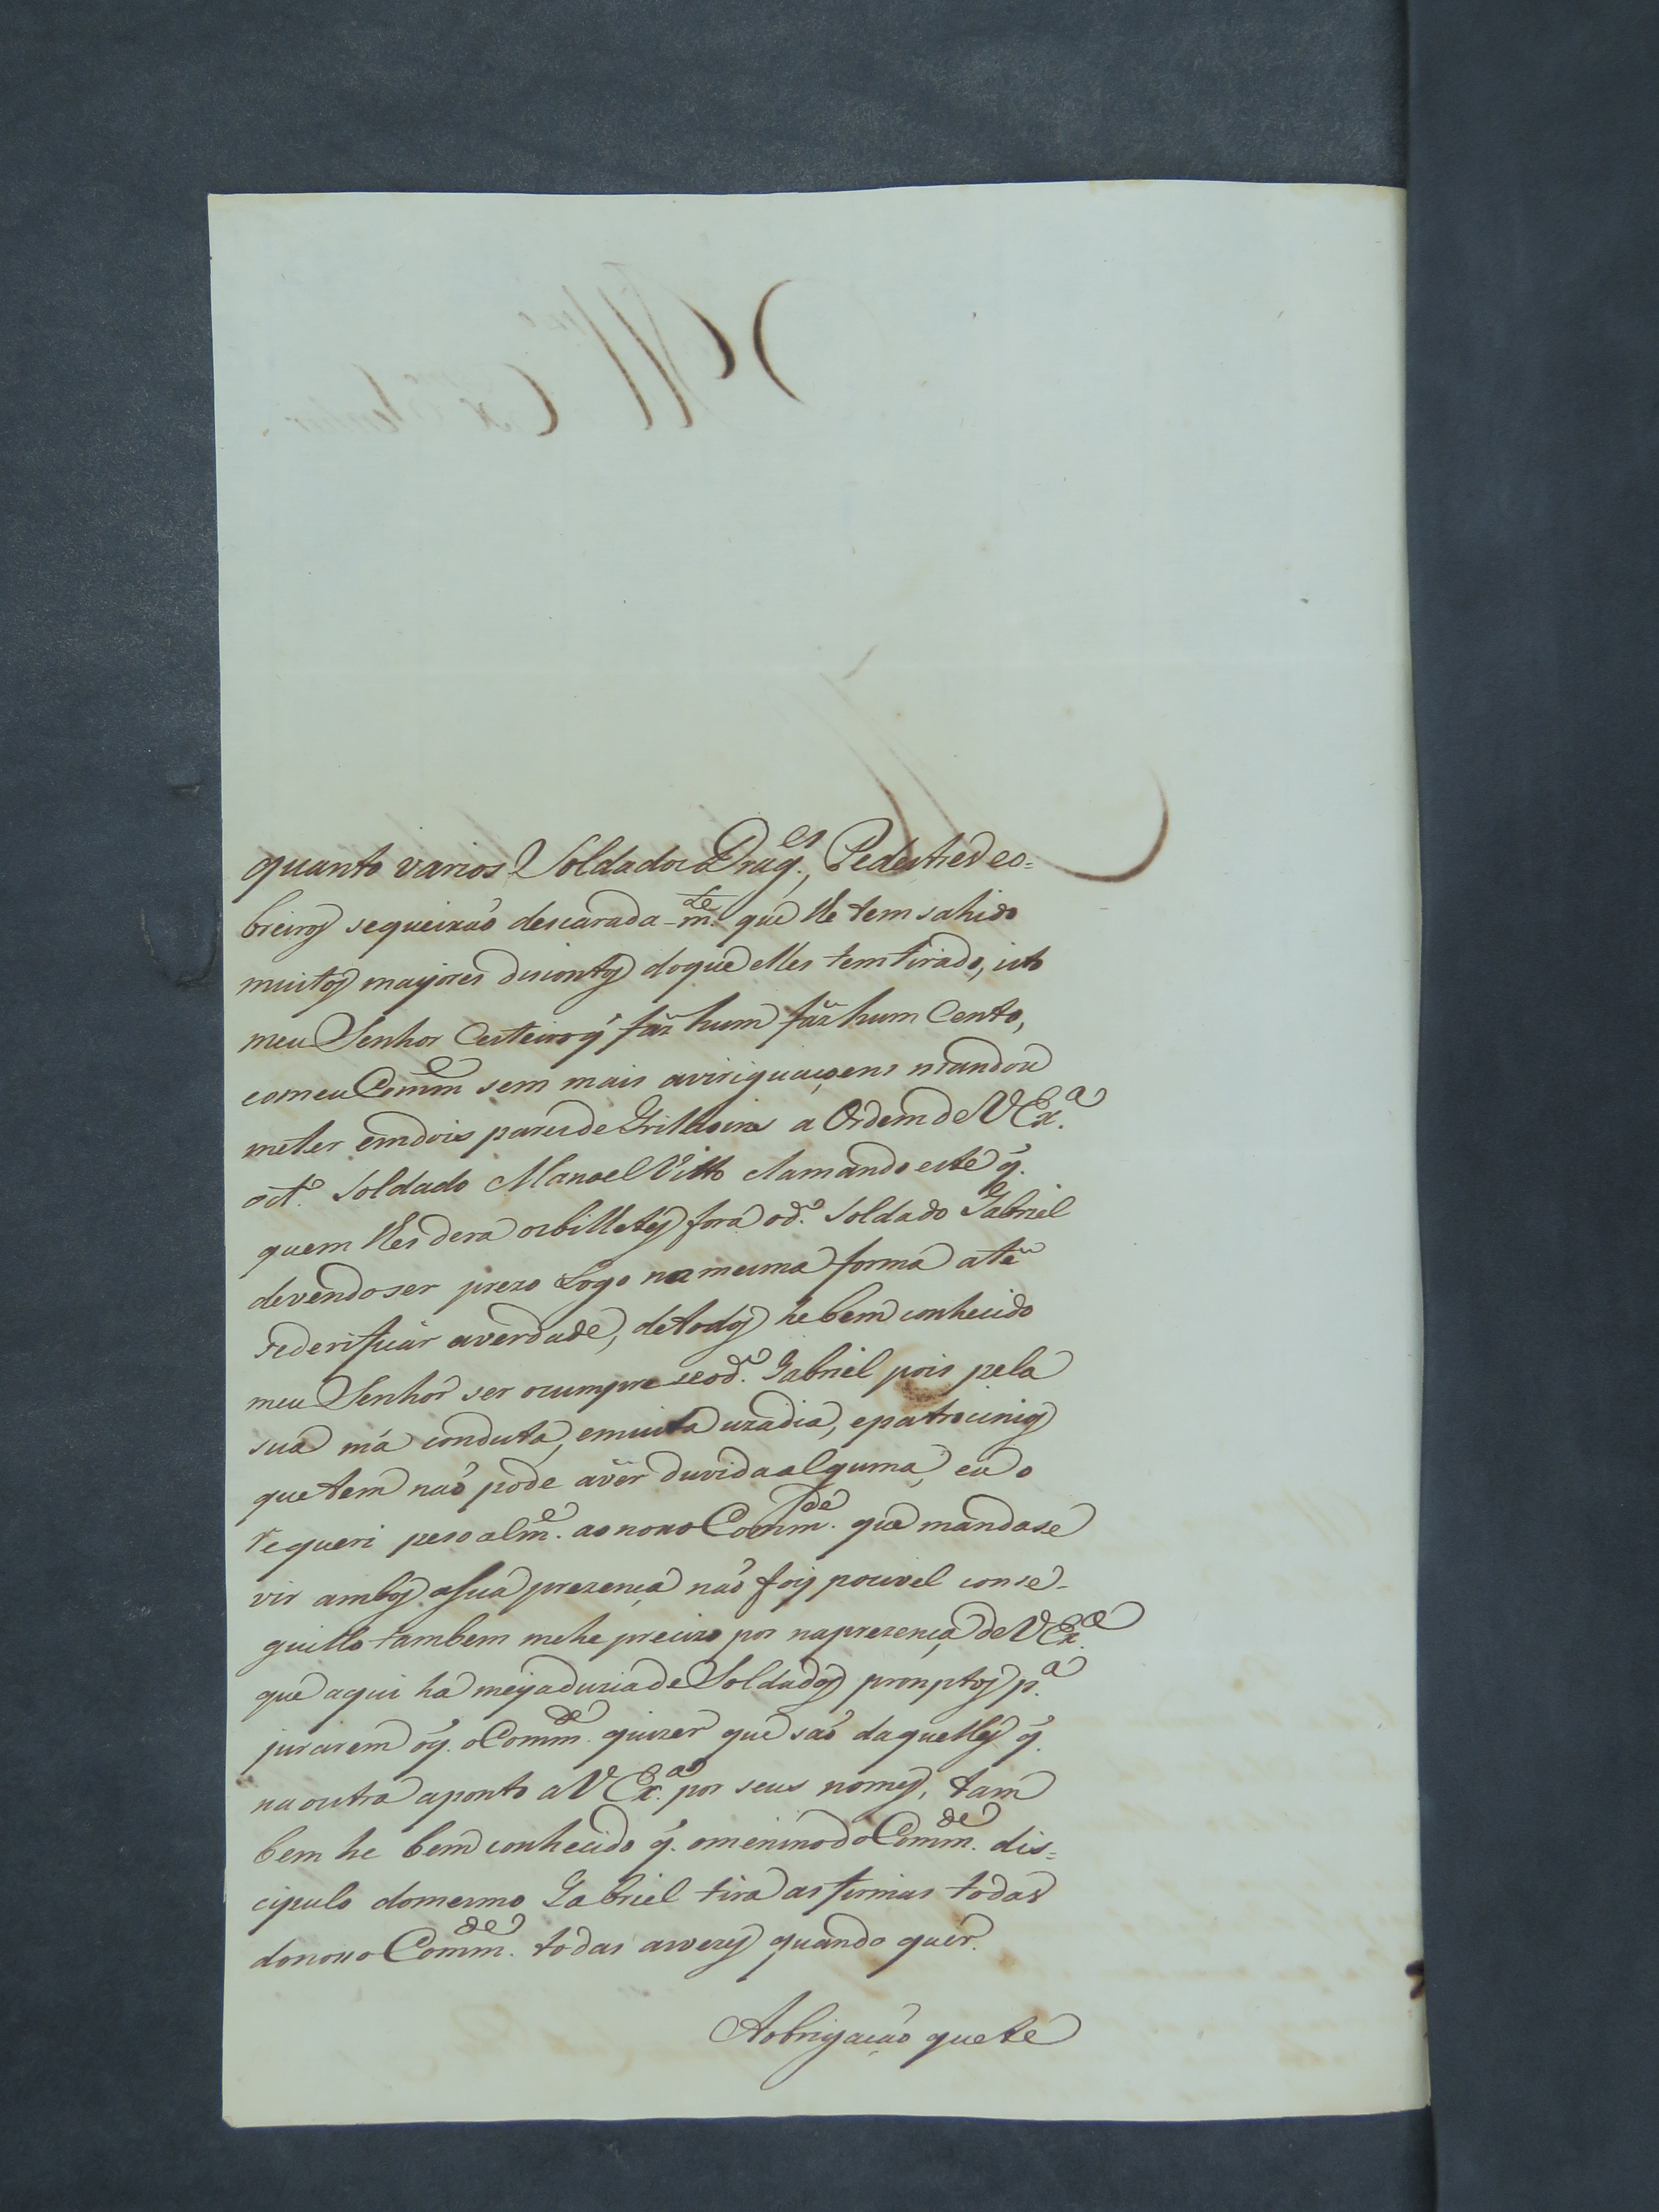 quanto varios Soldados Drag.es, Pedestres eo=
breiros sequeixaõ descarada-m.te que lle tem sahido
muitos mayores discontos doque elles temtirado, isto
meu Senhor Certeiro q̃ faz hum faz hum Cento,
eomeu Comm.e sem mais aviriguaçoens mandou
meter emdois paresde Grilhoins a Ordemde V Ex.a
od.o Soldado Manoel Vitto clamando este q̃.
quem lles dera osbilletes fora od.o Soldado Gabriel
devendoser prezo Logo na mesma forma athe
sederificar averdade, detodos he bem conhecido
meu Senhor ser ocumpre seod.o Gabriel pois pela
sua má conduta, emuita uzadia, epatrocinios
quetem naõ pode aver duvidaalguma, eu o
requeri pesoalm.e aonoso Comm.de que mandase
vir ambos asua prezença naõ foy posivel conse-
guillo tambem mehe precizo por naprezença de V Ex.a
que aqui ha meyaduziade Soldados promptos p.a
jurarem oq̃. oComm.de quizer que saõ daquelles q̃.
naoutra aponto aV Ex.a por seus nomes, tam
bem he bem conhecido q̃. omeninodoComm.de dis=
cipulo domesmo Gabriel tira asfirmas todas
donoso Comm.de todas asvezes quando quer.
Aobrigacaõ quete